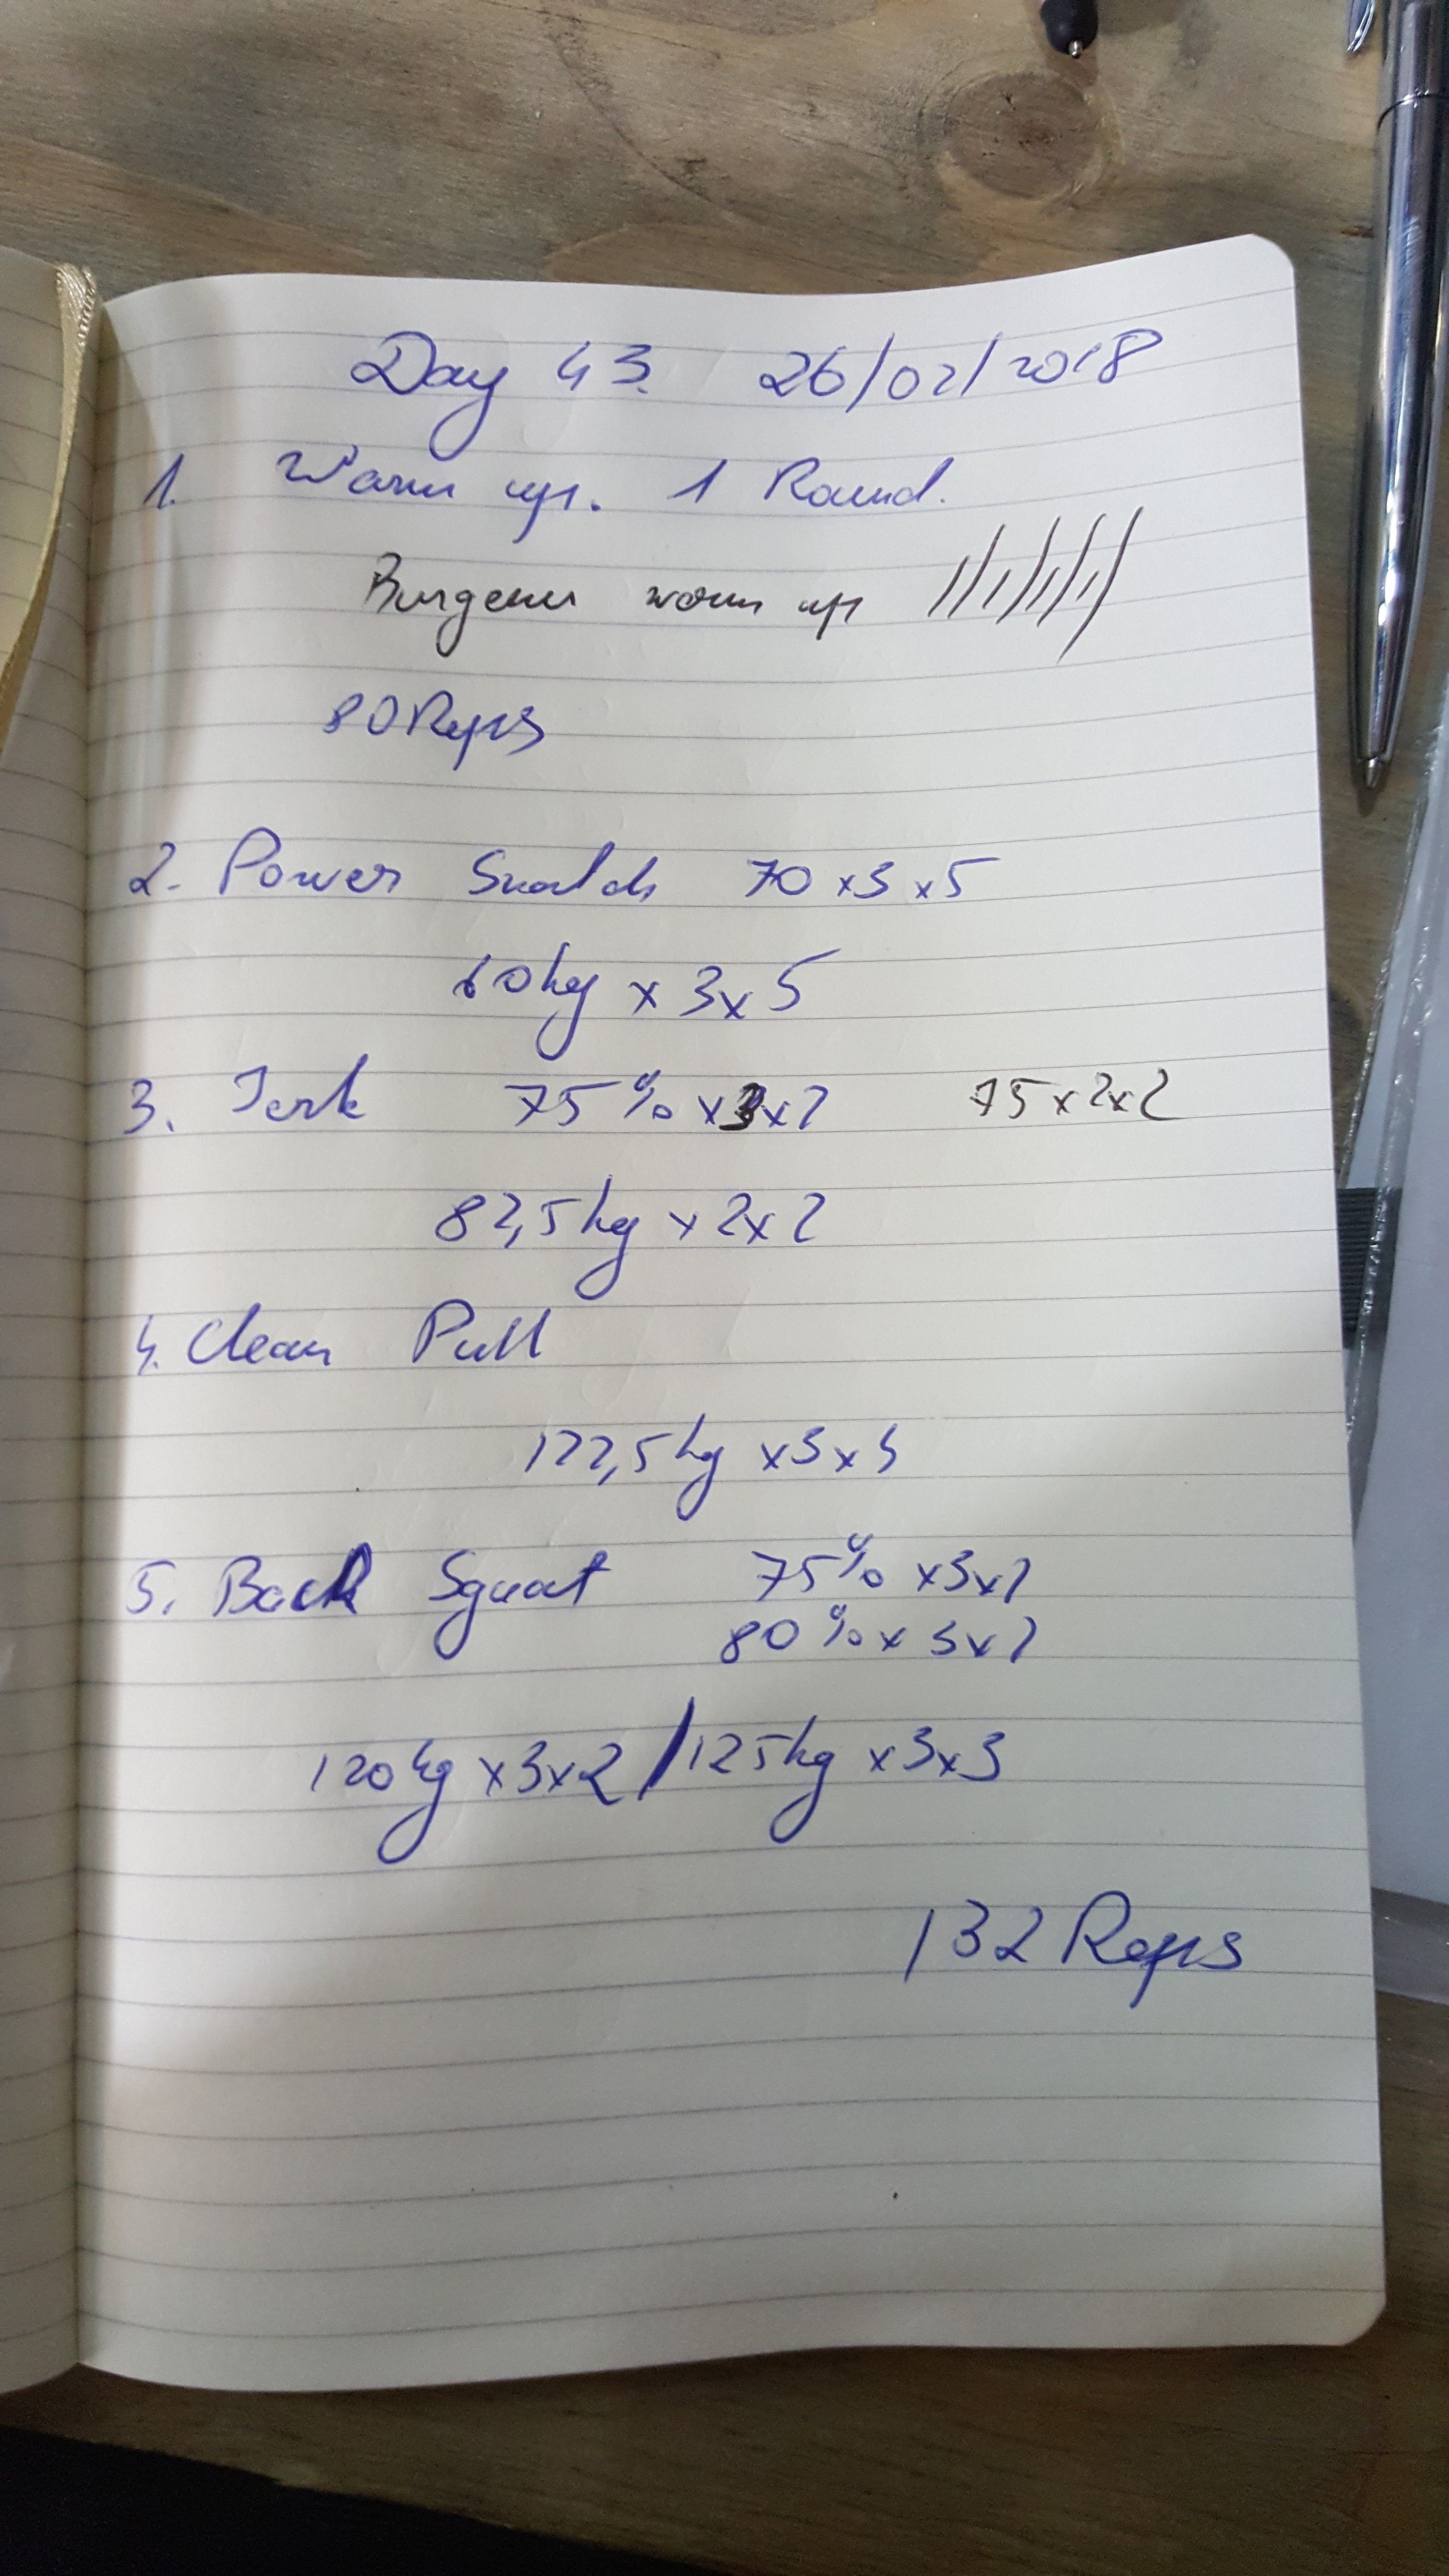 Day 43. 26/02/2018
1. Warm up. 1 Round.
Burgener warm up
80 Reps
2. Power Snatch 70 x3 x5
60kg x 3x5
3. Jerk 75% x3x2 75x2x2
82,5kg x 2x2
4. Clean Pull
122,5kg x3x3
5. Back Squat 75% x3x2
80% x 3x2
120kg x3x2 / 125kg x3x3
132 Reps